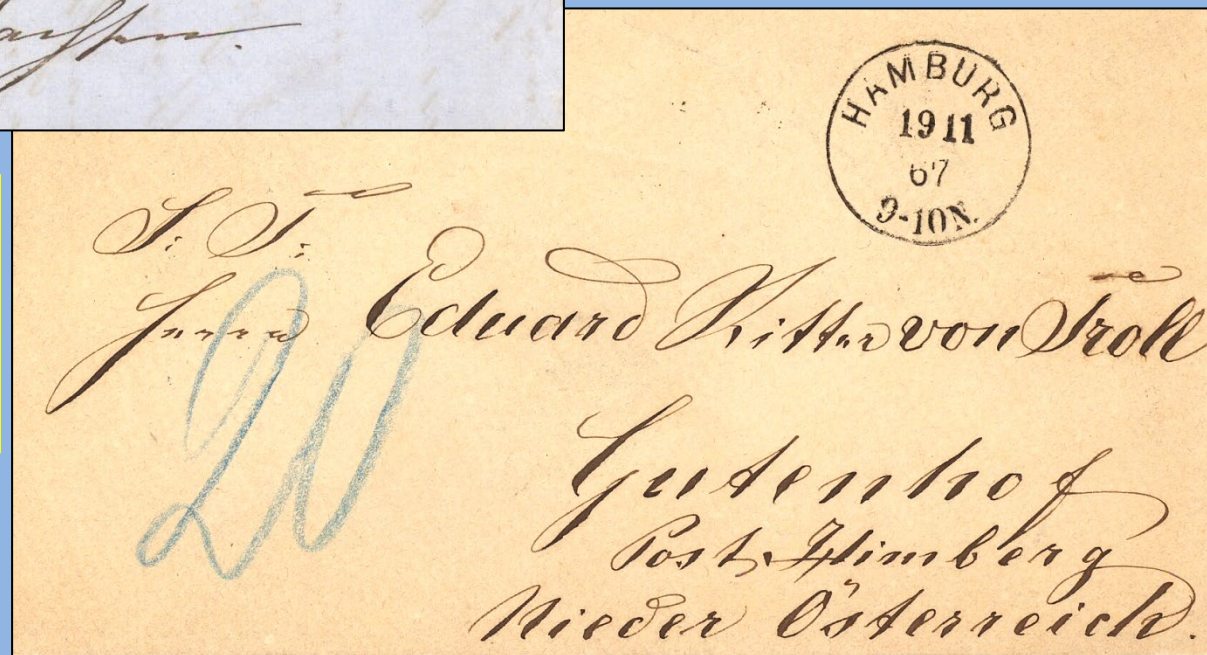 HAMBURG
19 11
67
9-10N.
S. T.
Herrn Eduard Ritter von Troll
20
Gutenhof
Post Himberg
Nieder Österreich.